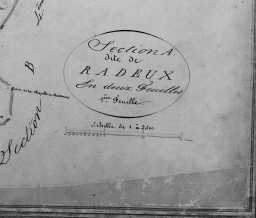 Section A.
dite de
RADEUX
En deux Feuilles
Feuille
Echelle de 1 à
B
Section